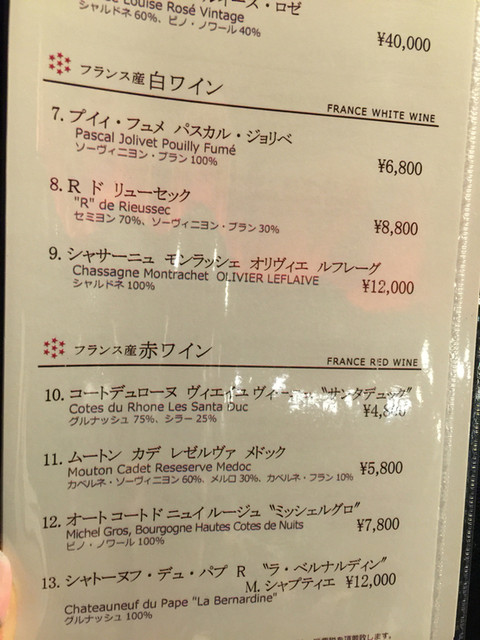 Louise Rosé Vintage
シャルドネ 60%、ピノ・ノワール 40%
¥40,000
フランス産 白ワイン
FRANCE WHITE WINE
7. プイィ・フュメ パスカル・ジョリベ
Pascal Jolivet Pouilly Fumé
ソーヴィニヨン・ブラン 100%
¥6,800
8. R ド リューセック
"R" de Rieussec
セミヨン 70%、ソーヴィニヨン・ブラン 30%
¥8,800
9. シャサーニュ モンラッシェ オリヴィエ ルフレーグ
Chassagne Montrachet OLIVIER LEFLAIVE
シャルドネ 100%
¥12,000
フランス産 赤ワイン
FRANCE RED WINE
10. コートデュローヌ ヴィエイユ "サンタデュック"
Cotes du Rhone Les Santa Duc
グルナッシュ 75%、シラー 25%
11. ムートン カデ レゼルヴァ メドック
Mouton Cadet Reseserve Medoc
¥5,800
カベルネ・ソーヴィニヨン 60%、メルロ 30%、カベルネ・フラン 10%
12. オート コート ド ニュイ ルージュ "ミッシェルグロ"
Michel Gros, Bourgogne Hautes Cotes de Nuits
¥7,800
ピノ・ノワール 100%
13. シャトーヌフ・デュ・パプ R "ラ・ベルナルディン"
M. シャプティエ ¥12,000
Chateauneuf du Pape "La Bernardine"
グルナッシュ 100%